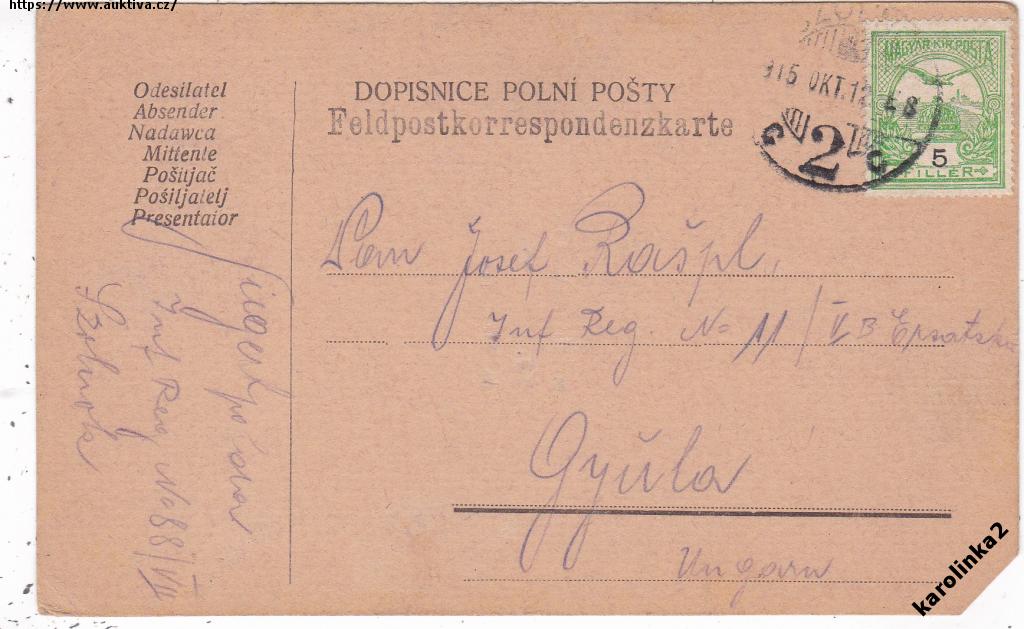 https://www.auktiva.cz/
Odesílatel
Absender
Nadawca
Mittente
Pošitjač
Pošiljatelj
Presentator
DOPISNICE POLNÍ POŠTY
Feldpostkorrespondenzkarte
MAGYAR KIR. POSTA
5
FILLÉR
915 OKT. 12
2
C C
Pan Josef Rašpl,
Inf Reg. No 11/ V B Ersatzk
Gyúla
Ungarn
Inf Reg No 88/VIII
Szolnok
karolinka2